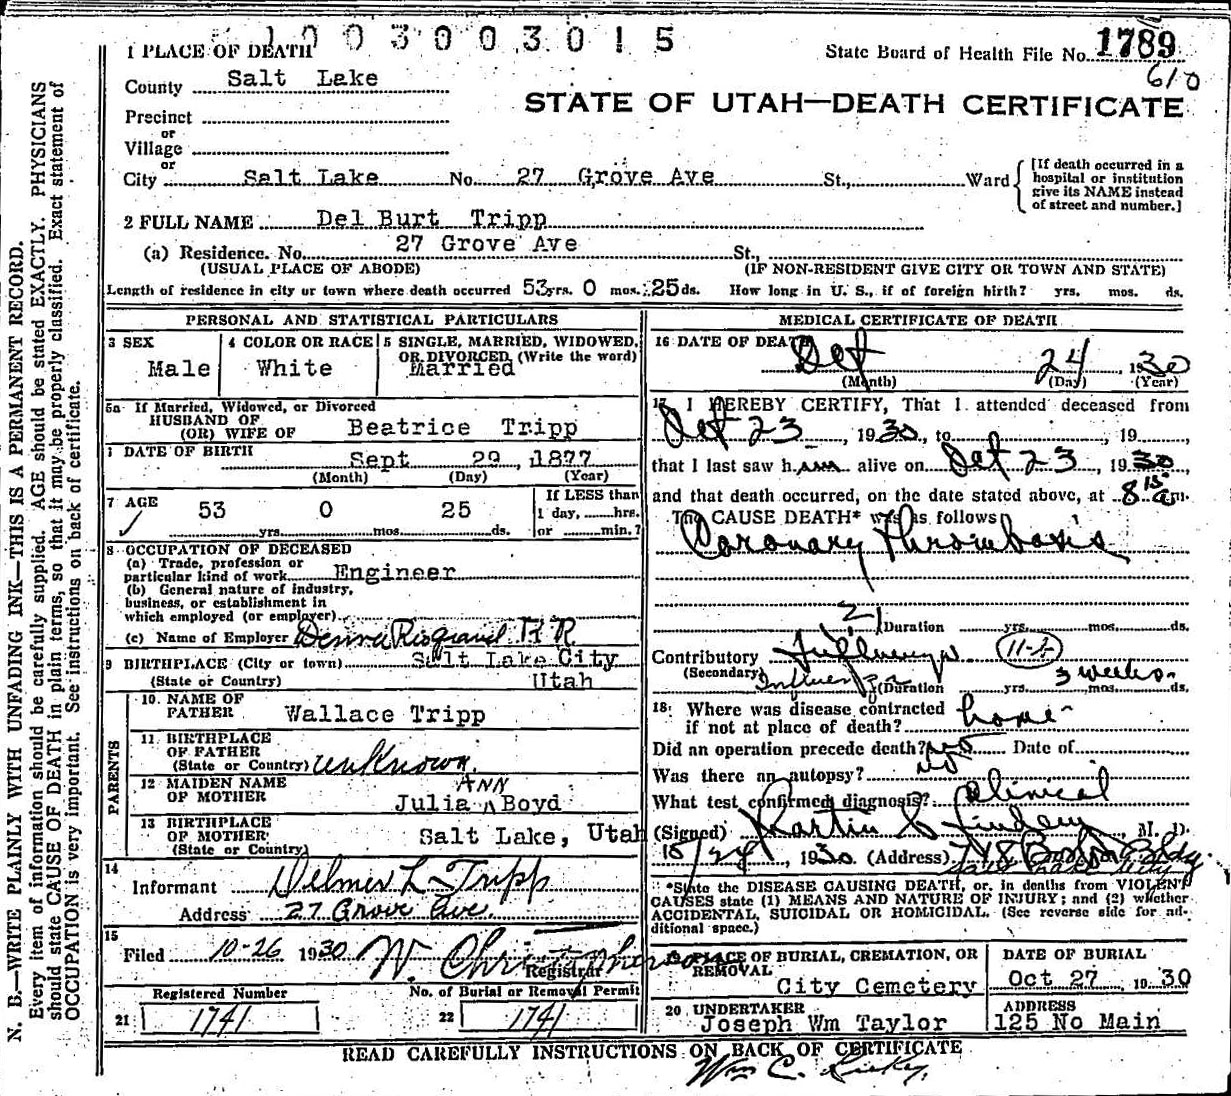 1003003015
State Board of Health File No. 1789
610
1 PLACE OF DEATH
County Salt Lake
STATE OF UTAH—DEATH CERTIFICATE
Precinct
or
Village
or
City Salt Lake No. 27 Grove Ave St., Ward
[If death occurred in a
hospital or institution
give its NAME instead
of street and number.]
2 FULL NAME Del Burt Tripp
(a) Residence. No. 27 Grove Ave St.,
(USUAL PLACE OF ABODE) (IF NON-RESIDENT GIVE CITY OR TOWN AND STATE)
Length of residence in city or town where death occurred 53 yrs. 0 mos. 25 ds. How long in U. S., if of foreign birth? yrs. mos. ds.
N. B.—WRITE PLAINLY WITH UNFADING INK—THIS IS A PERMANENT RECORD.
Every item of information should be carefully supplied. AGE should be stated EXACTLY. PHYSICIANS
should state CAUSE OF DEATH in plain terms, so that it may be properly classified. Exact statement of
OCCUPATION is very important. See instructions on back of certificate.
PERSONAL AND STATISTICAL PARTICULARS
3 SEX
Male
4 COLOR OR RACE
White
5 SINGLE, MARRIED, WIDOWED,
OR DIVORCED (Write the word)
Married
5a If Married, Widowed, or Divorced
HUSBAND OF
(OR) WIFE OF Beatrice Tripp
DATE OF BIRTH
Sept 29, 1877
(Month) (Day) (Year)
7 AGE
53 yrs. 0 mos. 25 ds.
If LESS than
1 day, hrs.
or min.?
8 OCCUPATION OF DECEASED
(a) Trade, profession or
particular kind of work Engineer
(b) General nature of industry,
business, or establishment in
which employed (or employer)
(c) Name of Employer Denver Riogrand R R
9 BIRTHPLACE (City or town) Salt Lake City
(State or Country) Utah
PARENTS
10. NAME OF
FATHER Wallace Tripp
11 BIRTHPLACE
OF FATHER
(State or Country) unknown.
12 MAIDEN NAME
OF MOTHER Julia ANN Boyd
13 BIRTHPLACE
OF MOTHER
(State or Country) Salt Lake, Utah
14
Informant Delmer L Tripp
Address 27 Grove Ave.
15
Filed 10-26 1930 W. Christopherson
Registrar
Registered Number
21 1741
No. of Burial or Removal Permit
22 1741
MEDICAL CERTIFICATE OF DEATH
16 DATE OF DEATH
Oct 24, 1930
(Month) (Day) (Year)
17 I HEREBY CERTIFY, That I attended deceased from
Oct 23, 1930, to , 19 ,
that I last saw him alive on Oct 23, 1930,
and that death occurred, on the date stated above, at 8 15 am.
The CAUSE DEATH* was as follows
Coronary Thrombosis
21
(Duration yrs. mos. ds.
Contributory Influenza 11-b
(Secondary)
Influenza (Duration yrs. 3 weeks mos. ds.
18: Where was disease contracted
if not at place of death? home
Did an operation precede death? no Date of
Was there an autopsy? no
What test confirmed diagnosis? Clinical
(Signed) Martin C Lindem, M. D.
10/24, 1930 (Address) 748 Bldg.
Salt Lake City
*State the DISEASE CAUSING DEATH, or, in deaths from VIOLENT
CAUSES state (1) MEANS AND NATURE OF INJURY; and (2) whether
ACCIDENTAL, SUICIDAL OR HOMICIDAL. (See reverse side for ad-
ditional space.)
19 PLACE OF BURIAL, CREMATION, OR
REMOVAL
City Cemetery
DATE OF BURIAL
Oct 27, 1930
20 UNDERTAKER
Joseph Wm Taylor
ADDRESS
125 No Main
READ CAREFULLY INSTRUCTIONS ON BACK OF CERTIFICATE
Wm C.